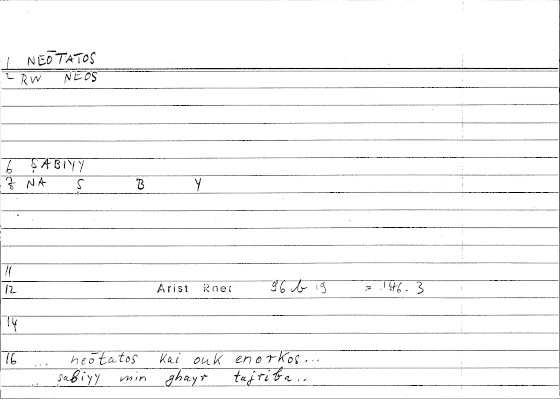 1 NEŌTATOS
2 RW NEOS
6 ṢABIYY
8 NA Ṣ B Y
11
12 Arist Rhet 96 b 19 = 146.3
14
16 ... neōtatos kai ouk enorkos...
.. ṣabiyy min ghayr tajriba..